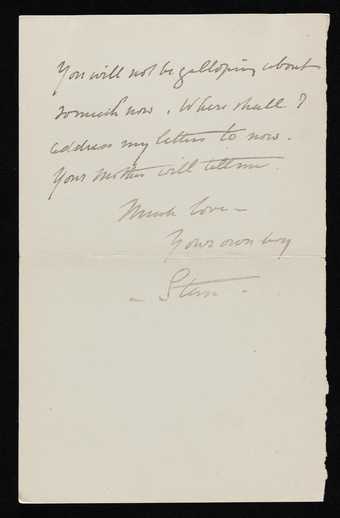 You will not be galloping about
so much now. Where shall I
address my letters to now.
Your Mother will tell me.
Much love –
Your own boy
– Stern –